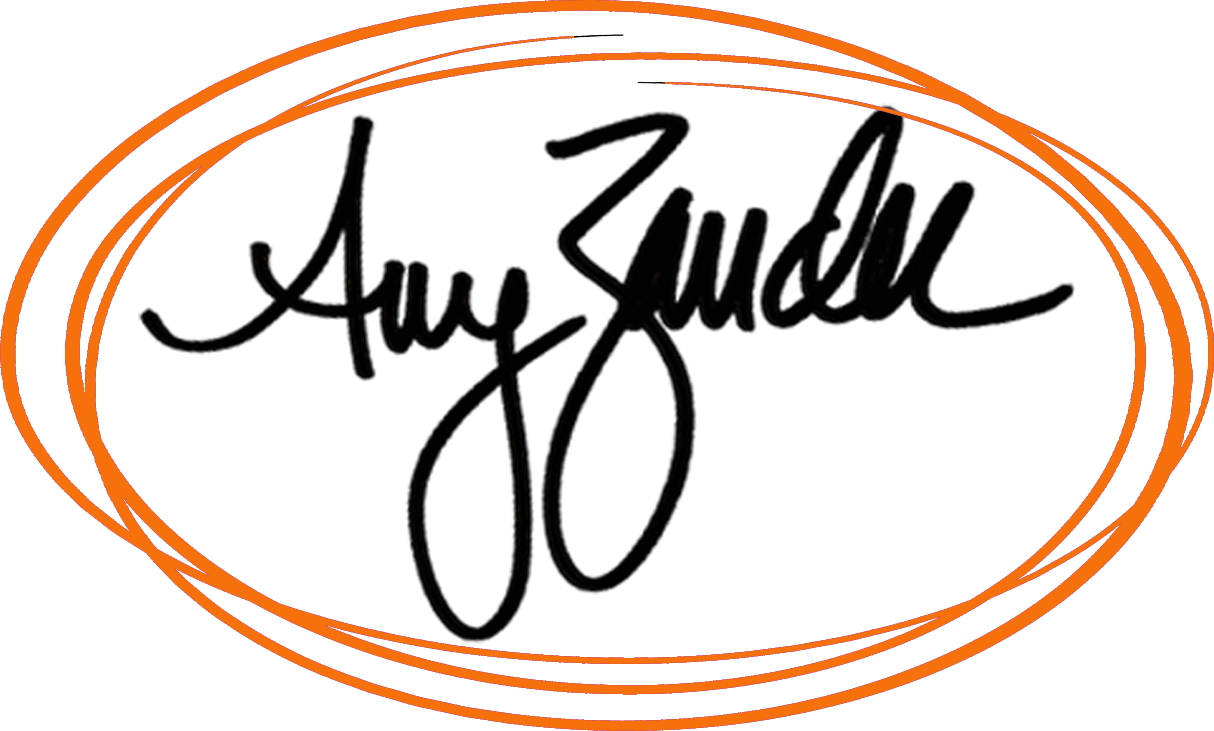 Amy Zander